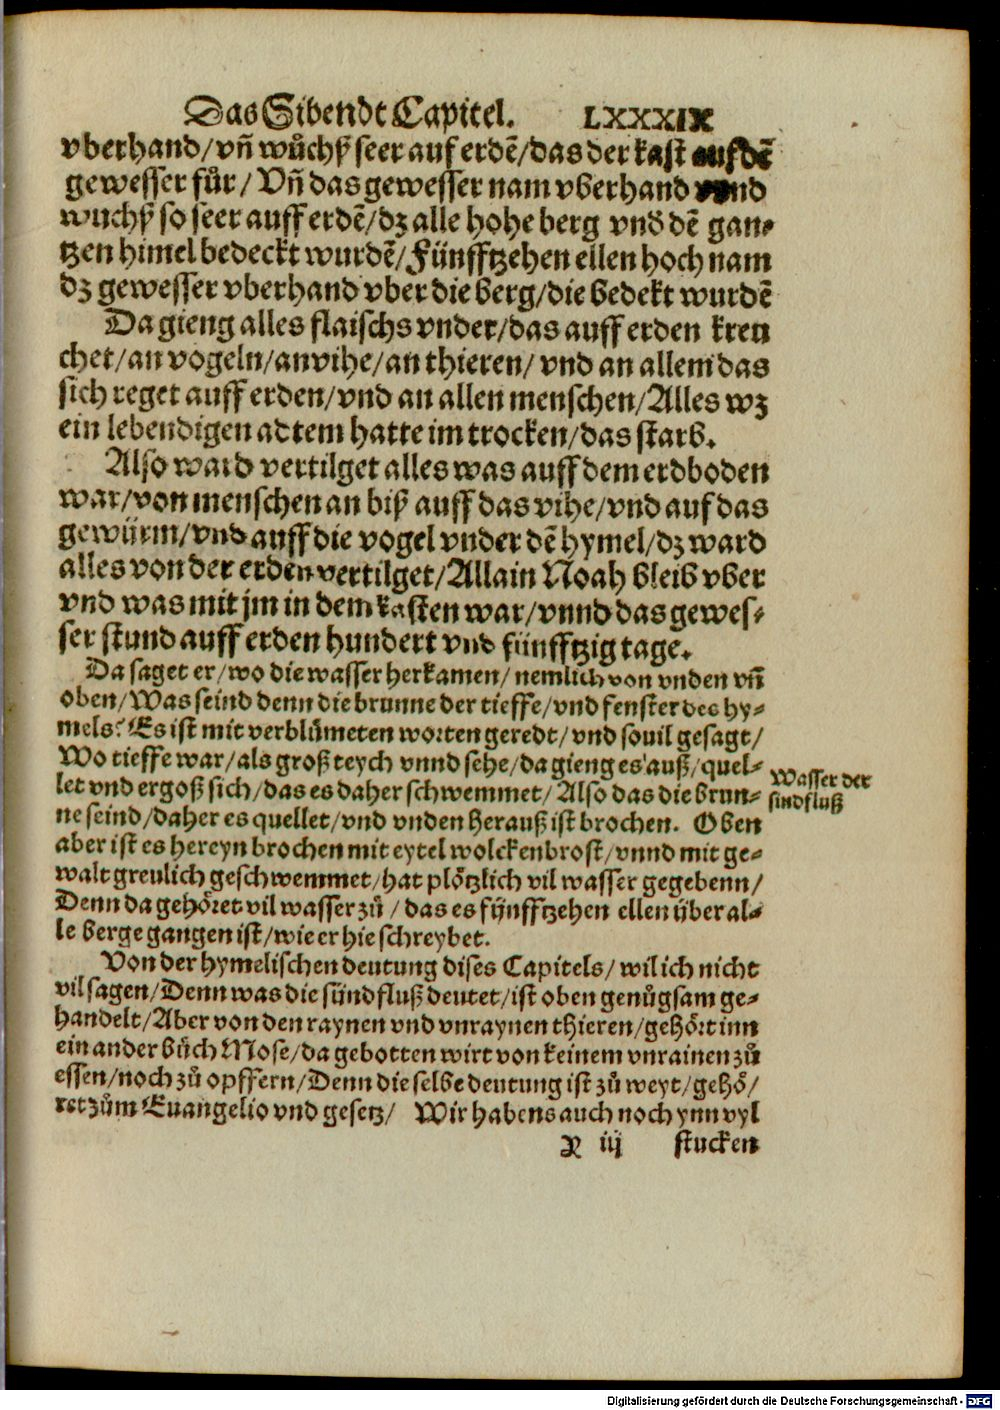 Das Sibendt Capitel. LXXXIX
vberhand/vñ wůchß seer auf erdē/das der kast aufdē
gewesser fůr/Vñ das gewesser nam vberhand vnnd
wuchß so seer auff erdē/dz alle hohe berg vnd dē gan⸗
tzen himel bedeckt wurdē/Fünfftzehen ellen hoch nam
dz gewesser vberhand vber die berg/die bedekt wurdē
Da gieng alles flaischs vnder/das auff erden kreu
chet/an vogeln/an vihe/an thieren/vnd an allem das
sich reget auff erden/vnd an allen menschen/Alles wz
ein lebendigen adtem hatte im trocken/das starb.
Also ward vertilget alles was auff dem erdboden
war/von menschen an biß auff das vihe/vnd auf das
gewürm/vnd auff die vogel vnder dē hymel/dz ward
alles von der erden vertilget/Allain Noah bleib vber
vnd was mit jm in dem kasten war/vnnd das gewes⸗
ser stund auff erden hundert vnd fünfftzig tage.
Da saget er/wo die wasser herkamen/nemlich von vnden vñ
oben/Was seind denn die brunne der tieffe/vnd fenster des hy⸗
mels? Es ist mit verblůmeten worten geredt/vnd souil gesagt/
Wo tieffe war/als groß teych vnnd sehe/da gieng es auß/quel⸗
let vnd ergoß sich/das es daher schwemmet/Also das die brun⸗
ne seind/daher es quellet/vnd vnden herauß ist brochen. Oben
aber ist es hereyn brochen mit eytel wolckenbrost/vnnd mit ge⸗
walt greulich geschwemmet/hat plötzlich vil wasser gegebenn/
Denn da gehöret vil wasser zů/das es fünfftzehen ellen über al⸗
le berge gangen ist/wie er hie schreybet.
Wasser der
sindfluß
Von der hymelischen deutung dises Capitels/wil ich nicht
vil sagen/Denn was die sündfluß deutet/ist oben genůgsam ge⸗
handelt/Aber von den raynen vnd vnraynen thieren/gehört inn
ein ander bůch Mose/da gebotten wirt von keinem vnrainen zů
essen/noch zů opffern/Denn die selbe deutung ist zů weyt/gehö/
ret zům Euangelio vnd gesetz/ Wir habens auch noch ynn vyl
X iij stucken
Digitalisierung gefördert durch die Deutsche Forschungsgemeinschaft - DFG